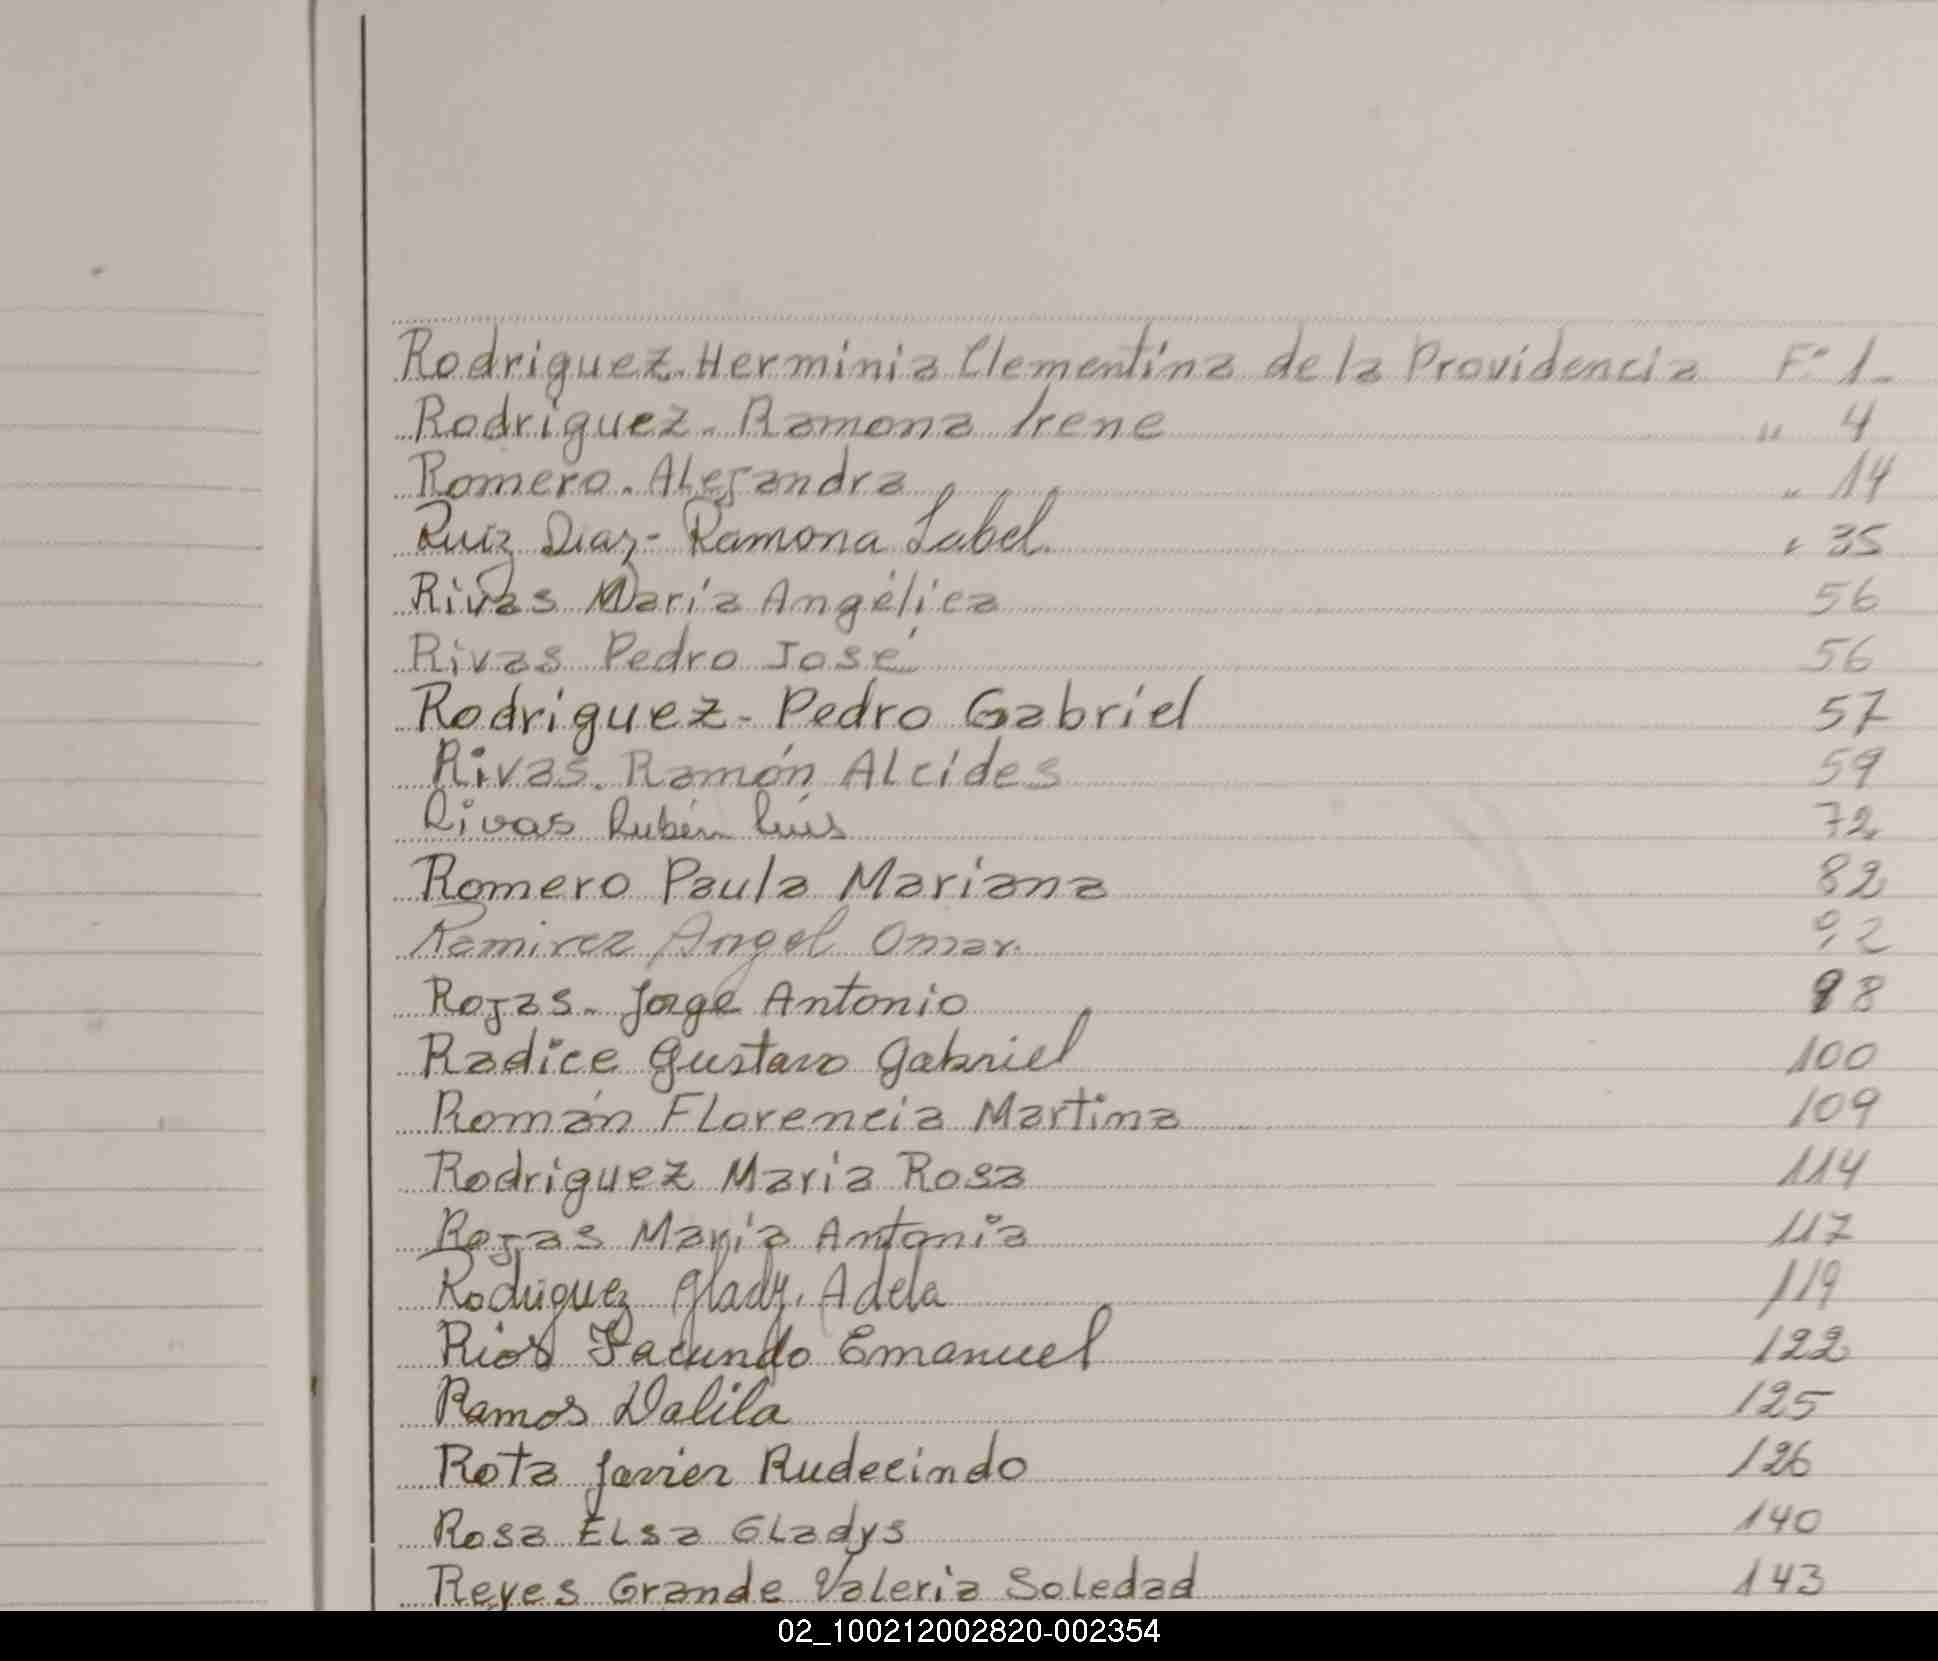 Rodriguez. Herminia Clementina de la Providencia F° 1_
Rodriguez. Ramona Irene " 4
Romero. Alejandra " 14
Ruiz Diaz - Ramona Isabel. " 35
Rivas María Angélica 56
Rivas Pedro José 56
Rodriguez - Pedro Gabriel 57
Rivas. Ramón Alcides 59
Rivas Rubén Luis 72
Romero Paula Mariana 82
Ramirez Angel Omar. 92
Rojas - Jorge Antonio 98
Radice Gustavo Gabriel 100
Román Florencia Martina 109
Rodriguez María Rosa 114
Rojas María Antonia 117
Rodriguez Gladys Adela 119
Rios Facundo Emanuel 122
Ramos Dalila 125
Rota Javier Rudecindo 126
Rosa Elsa Gladys 140
Reyes Grande Valeria Soledad 143
02_100212002820-002354